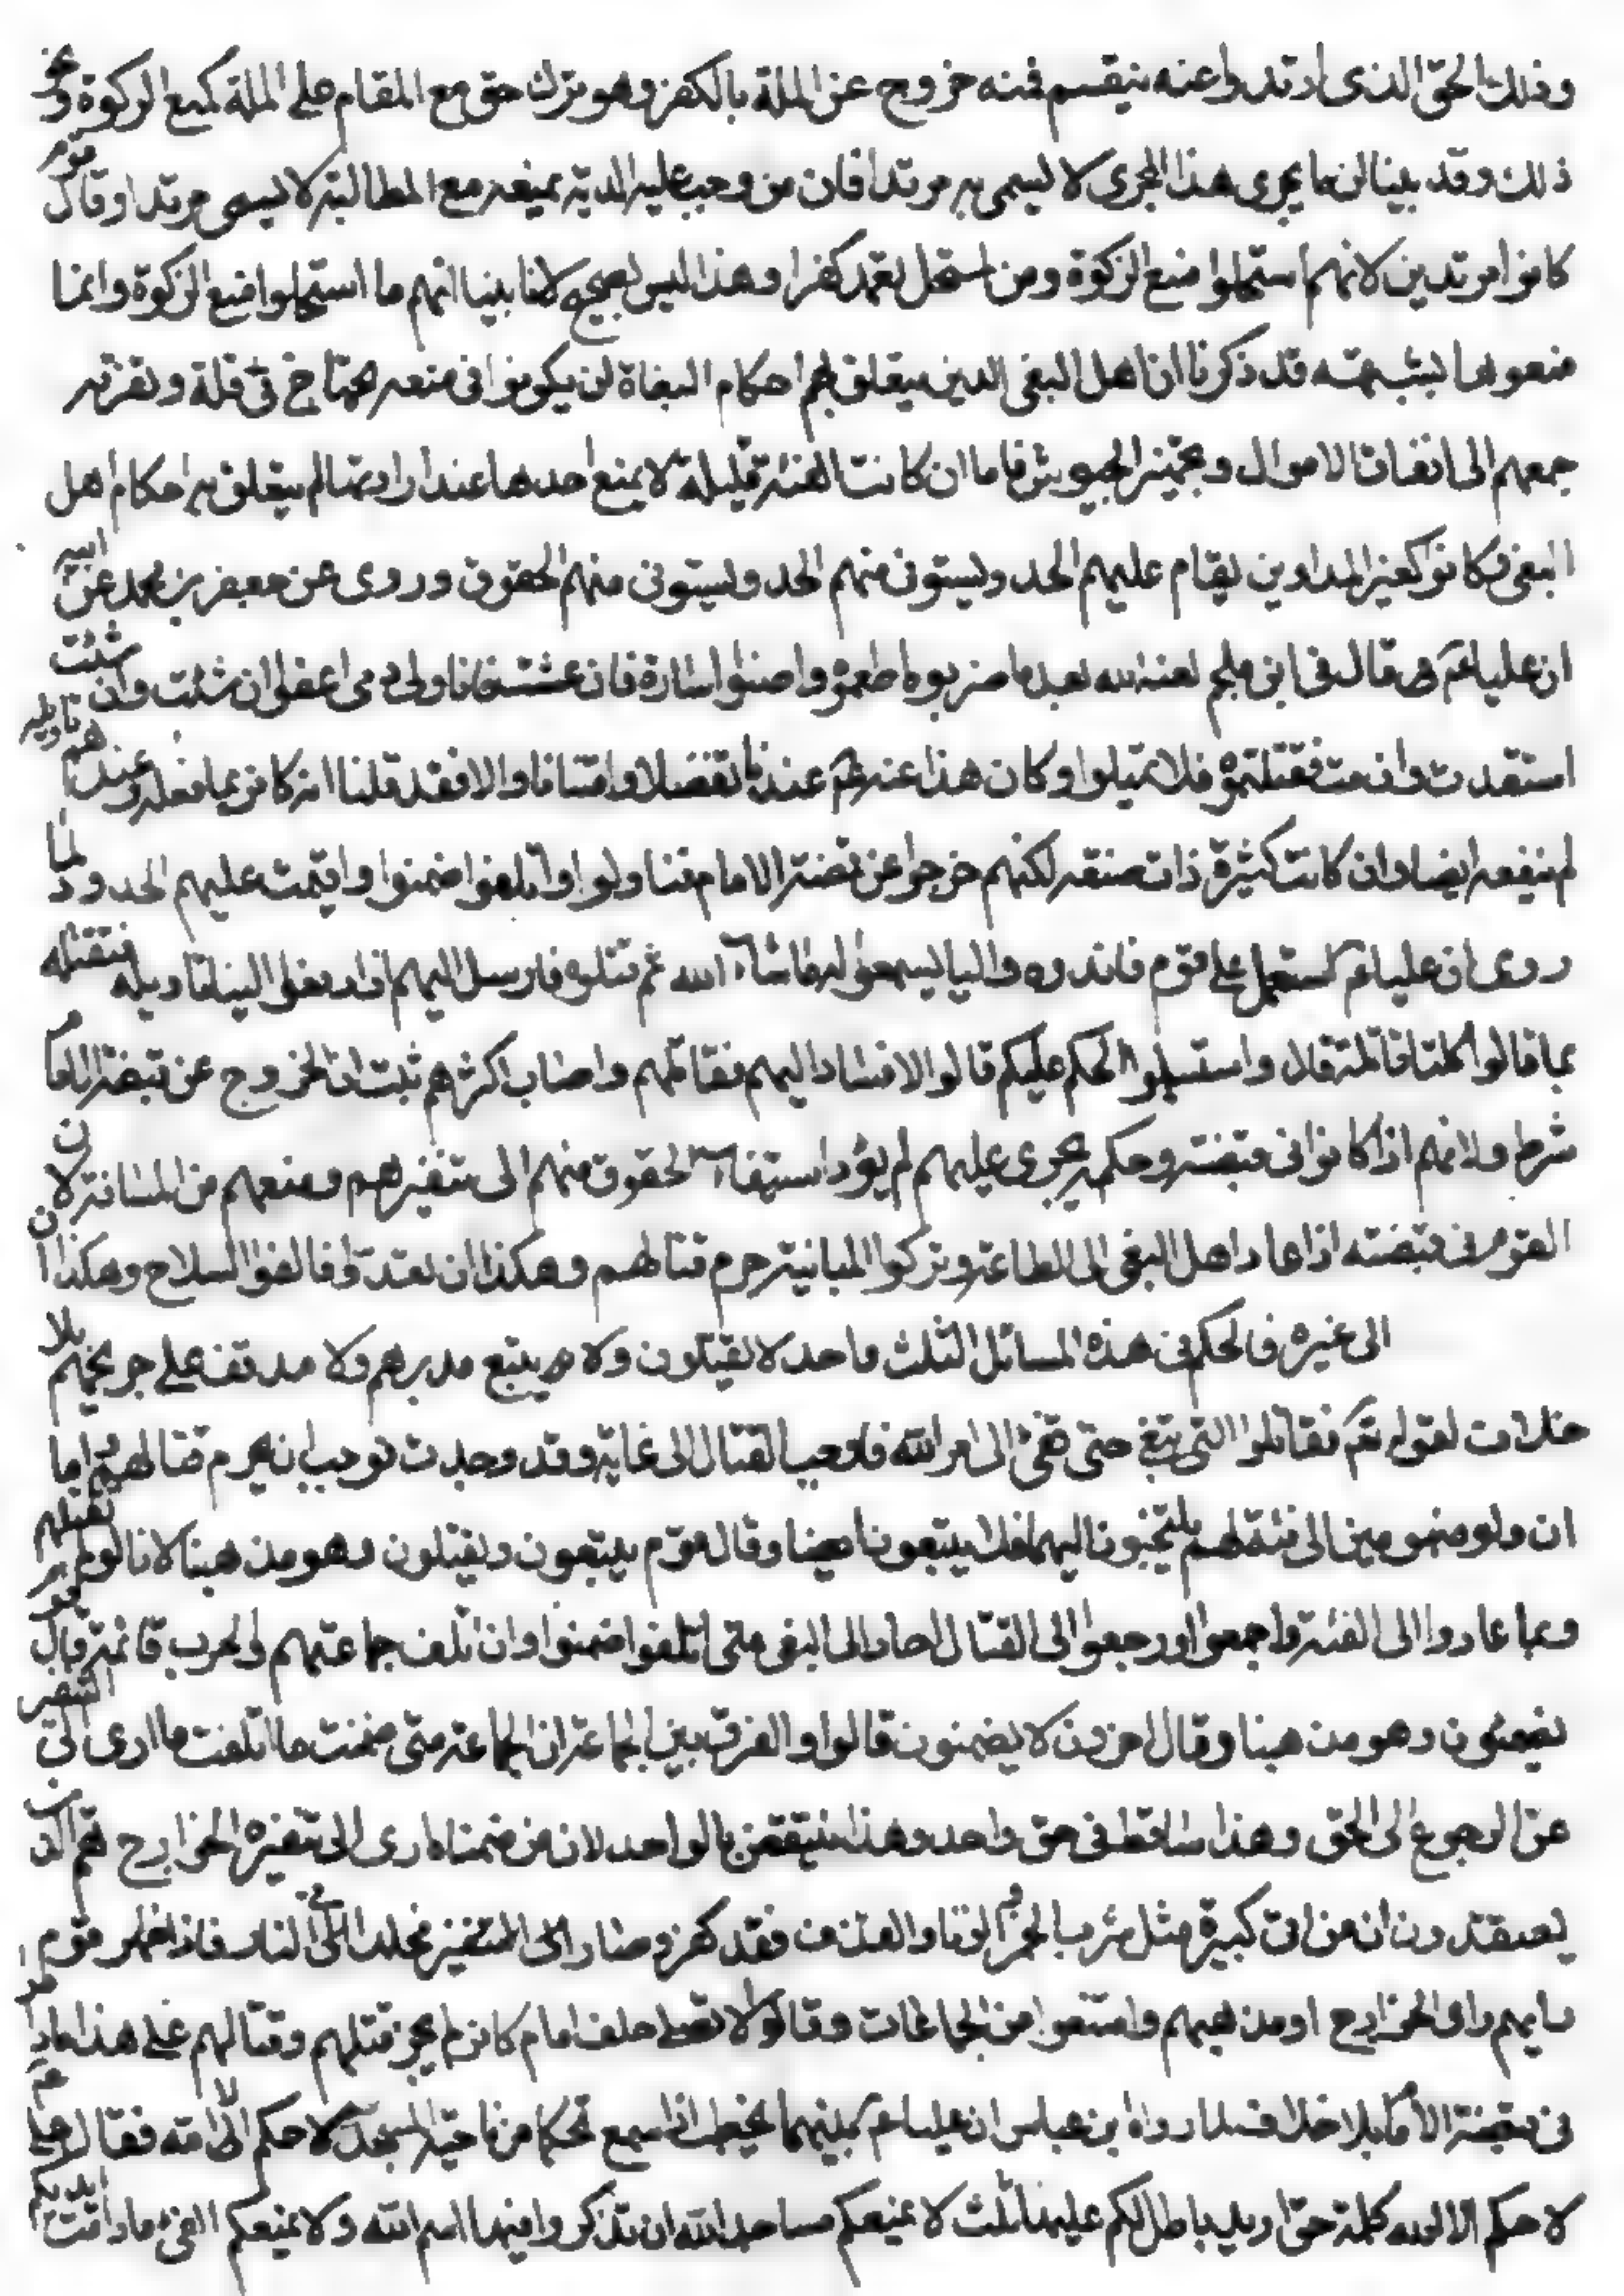 وذلك الحق الذى ارتدوا عنه ينقسم فمنه خروج عن الملة بالكفر وهو ترك حق مع المقام على الملة كمنع الزكوة ونحو
ذلك وقد بينا ان ما يجرى هذا المجرى لا يسمى به مرتدا فان من وجب عليه الدية بمنعه مع المطالبة لا يسمى مرتدا وقال قوم
كانوا مرتدين لانهم استحلوا منع الزكوة ومن استحل كفرا وهذا ليس بصحيح لانا بينا انهم ما استحلوا منع الزكوة وانما
منعوها لشبهة قد ذكرنا ان اهل البغى الذين يتعلق بهم احكام البغاة ان يكونوا فى منعه يحتاج فى وتفرقه
جمعهم الى انفاق الاموال وتجهيز الجيوش فاما ان كانت الفئة قليلة لا يمنع احدها عند ارادتها لم يتعلق به احكام اهل
البغى وكانوا كغير المداوين يقام عليهم الحد ويستوفى منهم الحد ويستوفى منهم الحقوق وروى عن جعفر بن محمد عن ابيه
ان عليا عم قال فى ابن ملجم لعنه الله بعد ما ضربه اطعموه اساره فان عشت فانا ولى دمى اعفو ان شئت وان شئت
استقدت وان مت فقتلتموه فلا تمثلوا وكان هذا عنه عم عندنا تفضلا وامتنانا والا فقد قلنا انه كافر بما فعله وعندهم تاويله
لم ينفعه ايضا وان كانت كثيرة ذات منعة لكنهم خرجوا عن قبضة الامام فتناولوا واتلفوا ضمنوا واقيمت عليهم الحدود لما
روى ان عليا عم استعمل على قوم واليا يسمعوا له ما شاء الله ثم قتلوه فارسل اليهم ان ادفعوا الينا قاتله فنقتله
قالوا كلنا قتله قال واستسلموا الحكم عليكم قالوا لا فسار اليهم فقاتلهم واصاب اكثرهم ثبت ان الخروج عن قبضة الامام
شرط ولانهم اذا كانوا فى قبضته وحكمه يجرى عليهم لم يؤد استيفاء الحقوق منهم الى تنفيرهم ومنعهم من لان
القوم فى قبضته اذا عاد اهل البغى الى الطاعة وتركوا المباينة حرم قتالهم وهكذا ان قعدوا فالقوا السلاح وهكذا ان
الى غيره فالحكم فى هذه المسائل الثلث واحد لا يقتلون ولا يتبع مدبرهم ولا يدفف على جريحهم بلا
خلاف لقوله تع فقاتلوا التى تبغى حتى تفئ الى امر الله فاوجب القتال الى غاية وقد وجدت فوجب ان يحرم قتالهم فاما
ان ولوا منهزمين الى فئة لهم يلتجئون اليها فلا يتبعون ايضا وقال قوم يتبعون ويقتلون وهو مذهبنا لانا لو لم نقتلهم
ربما عادوا الى الفئة واجمعوا ورجعوا الى القتال اهل البغى متى اتلفوا ضمنوا وان اتلف جماعتهم والحرب قائمة قال قوم
يضمنون وهو مذهبنا وقال اخرون لا يضمنون قالوا والفرق بين الجماعة ان الجماعة متى ضمنت ما اتلفت ادى الى التنفير
عن الرجوع الى الحق وهذا ساقط فى حق واحد وهذا ينتقض بالواحد لان من ضمناه ادى الى تنفيره الخوارج هم الذين
يعتقدون ان من اتى كبيرة مثل شرب الخمر والزنا والقذف فقد كفر وصار مخلدا فى النار فاذا ظهر قوم
رايهم راى الخوارج او مذهبهم وامتنعوا من الجماعات وقالوا لا نصلى خلف امام كافر لم يجز قتلهم وقتالهم على هذا ما داموا
فى قبضة الامام بلا خلاف لما رواه ابن عباس ان عليا عم بينهما يخطب اذ سمع تحكما من ناحية المسجد لا حكم الا لله فقال على عم
لا حكم الا لله كلمة حق اريد بها باطل لكم علينا ثلث لا نمنعكم مساجد الله ان تذكروا فيها اسم الله ولا نمنعكم الفئ ما دامت ايديكم